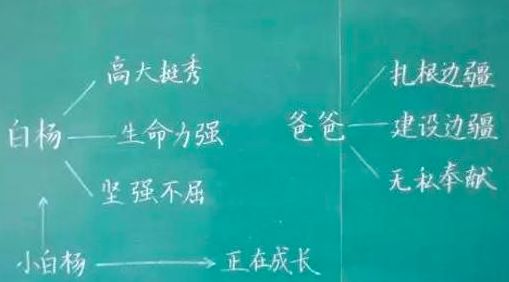 高大挺秀
白杨 生命力强
坚强不屈
小白杨 正在成长
爸爸
扎根边疆
建设边疆
无私奉献